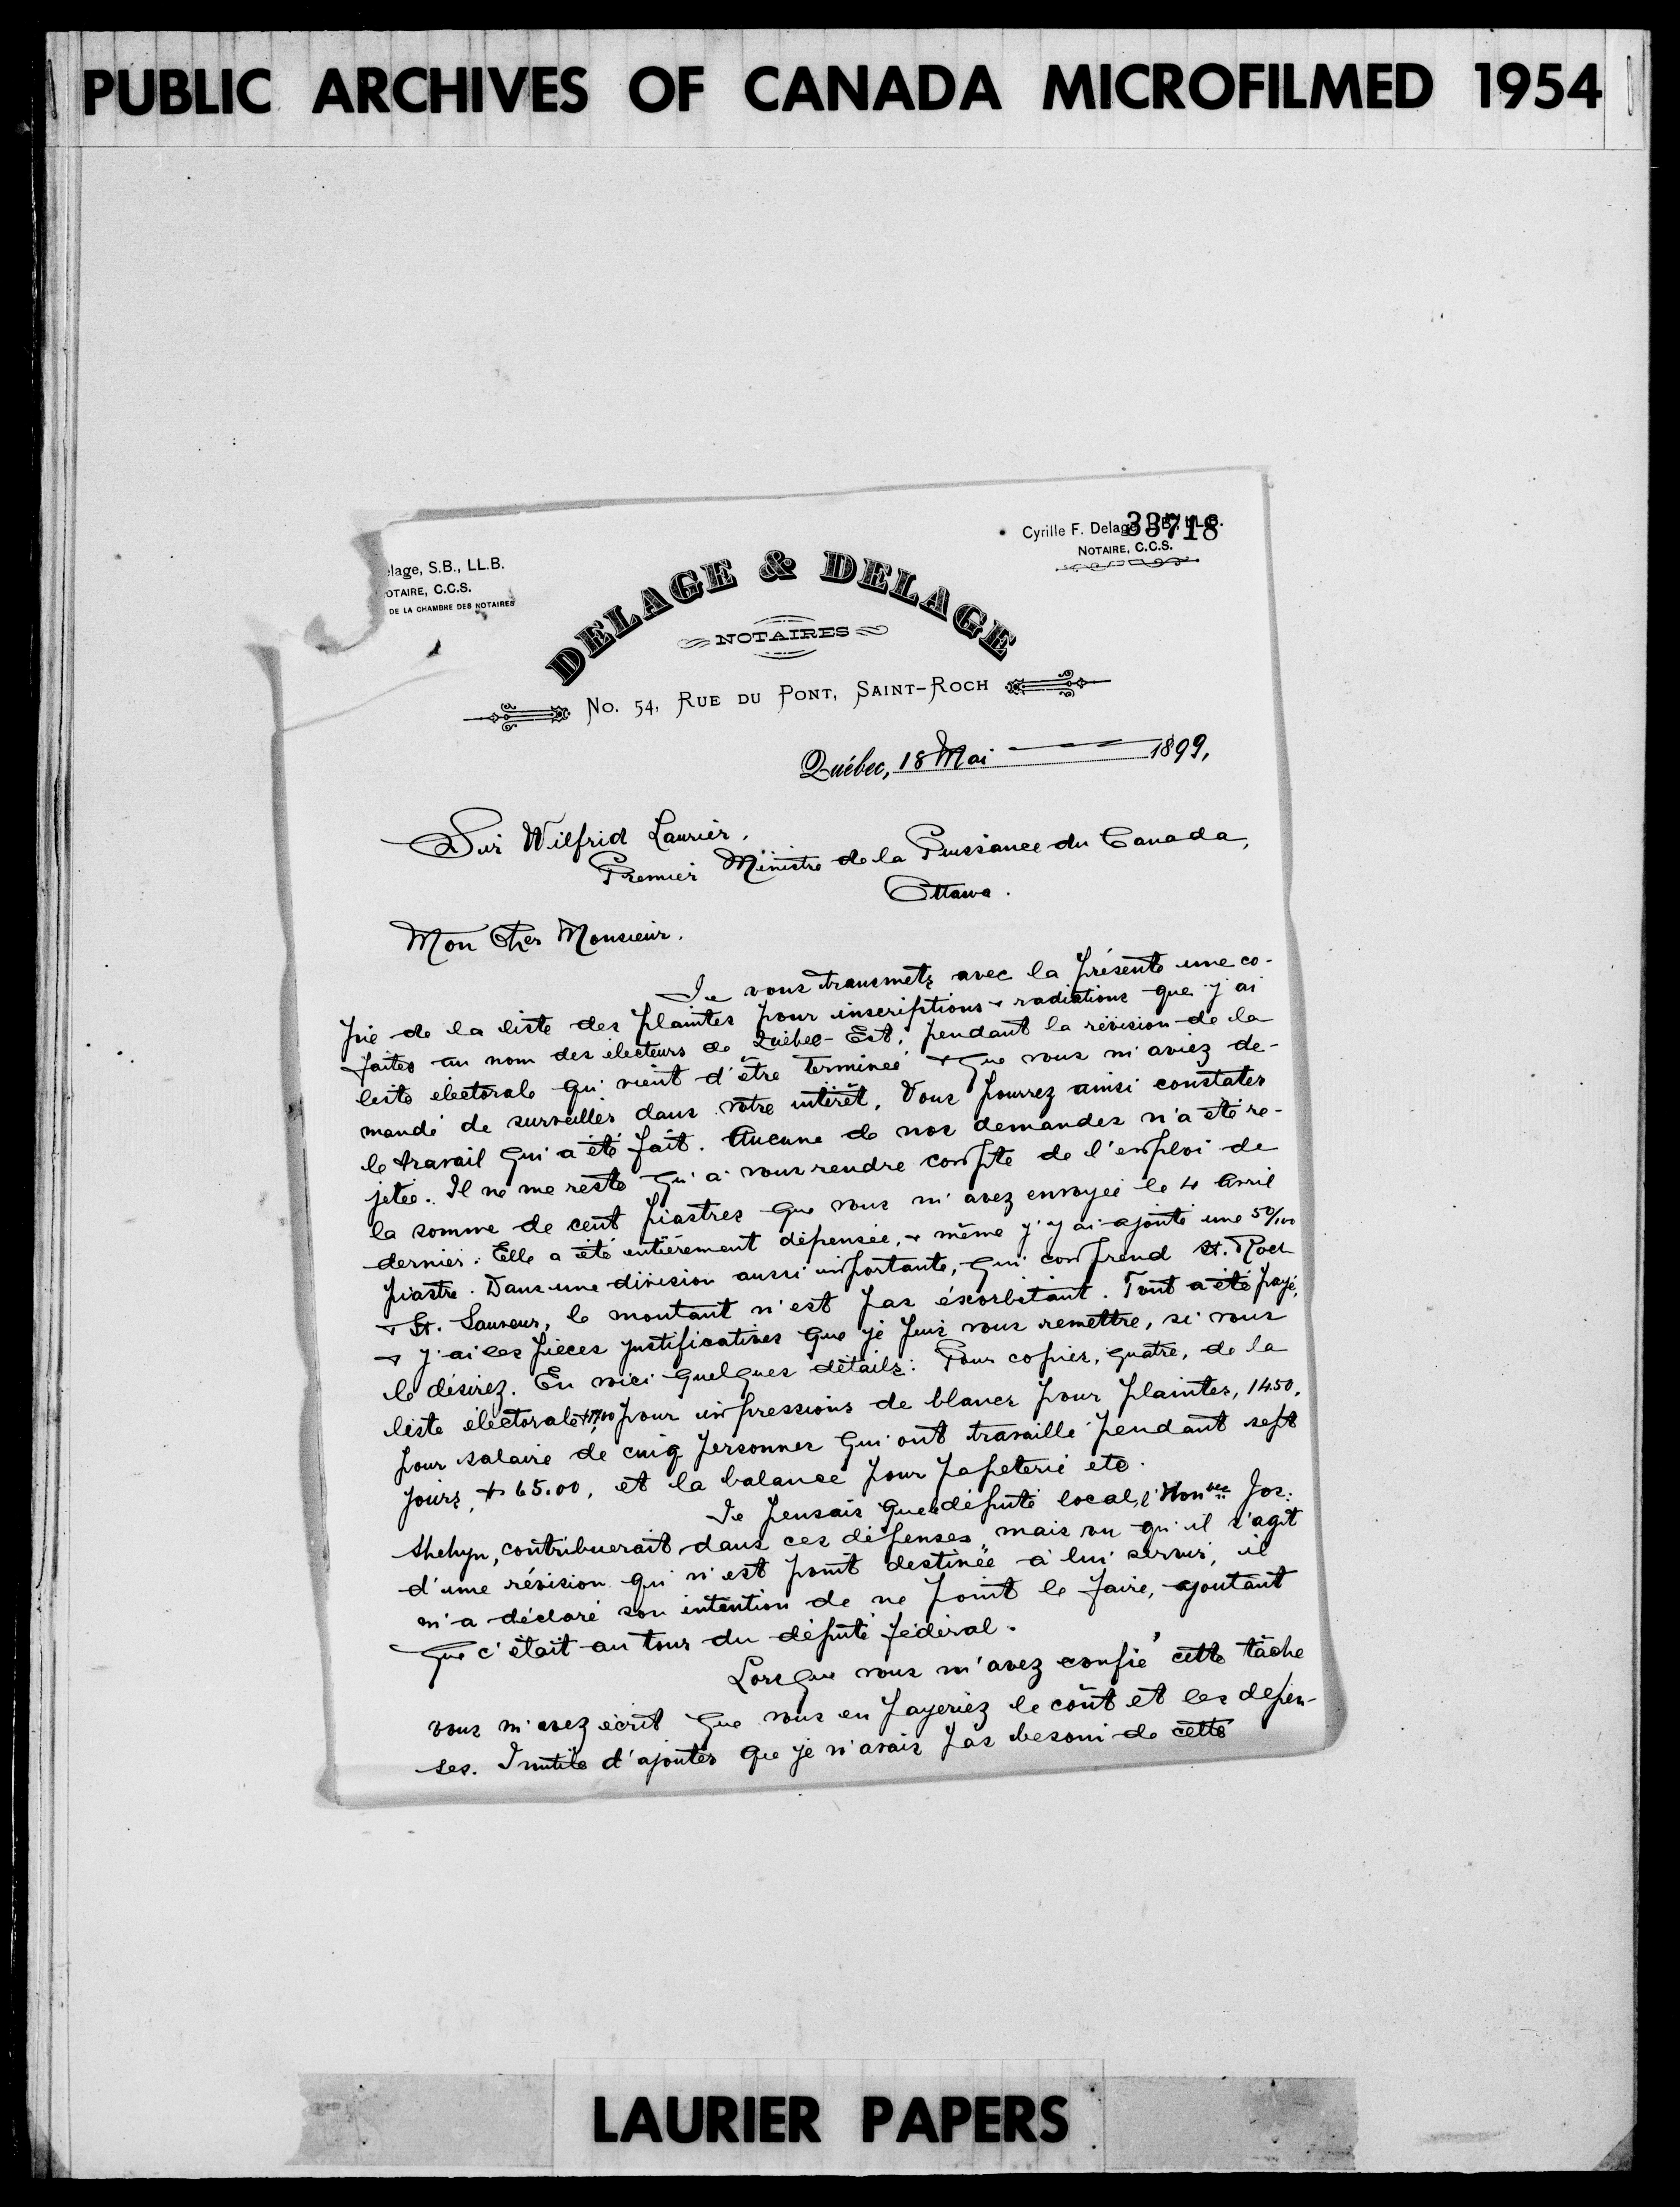 PUBLIC ARCHIVES OF CANADA MICROFILMED 1954
33718
elage, S.B., LL.B.
OTAIRE, C.C.S.
DE LA CHAMBRE DES NOTAIRES
Cyrille F. Delage LL.B.
NOTAIRE, C.C.S.
DELAGE & DELAGE
NOTAIRES
No. 54, RUE DU PONT, SAINT-ROCH
Québec, 18 Mai 1899,
Sir Wilfrid Laurier,
Premier Ministre de la Puissance du Canada,
Ottawa.
Mon Cher Monsieur.
Je vous transmets avec la présente une co-
pie de la liste des plaintes pour inscriptions & radiations que j'ai
faites au nom des électeurs de Québec-Est, pendant la révision de la
liste électorale qui vient d'être terminée & que vous m'aviez de-
mandé de surveiller dans votre intérêt. Vous pourrez ainsi constater
le travail qui a été fait. Aucune de nos demandes n'a été re-
jetée. Il ne me reste qu'à vous rendre compte de l'emploi de
la somme de cent piastres que vous m'avez envoyée le 4 Avril
dernier. Elle a été entièrement dépensée, & même j'y ai ajouté une 50/100
piastre. Dans une division aussi importante, qui comprend St. Roch
& St. Sauveur, le montant n'est pas éxorbitant. Tout a été payé,
& j'ai les pièces justificatives que je puis vous remettre, si vous
le désirez. En voici quelques détails: Pour copies, quatre, de la
liste électorale pour impressions de blancs pour plaintes, 14.50,
pour salaire de cinq personnes qui ont travaillé pendant sept
jours, $65.00, et la balance pour papeterie etc.
Je pensais que le député local, l'Honble Jos:
Shehyn, contribuerait dans ces dépenses, mais vu qu'il s'agit
d'une révision qui n'est point destinée à lui servir, il
m'a déclaré son intention de ne point le faire, ajoutant
que c'était au tour du député fédéral.
Lorsque vous m'avez confié cette tâche
vous m'avez écrit que vous en payeriez le coût et les dépen-
ses. Inutile d'ajouter que je n'avais pas besoin de cette
LAURIER PAPERS